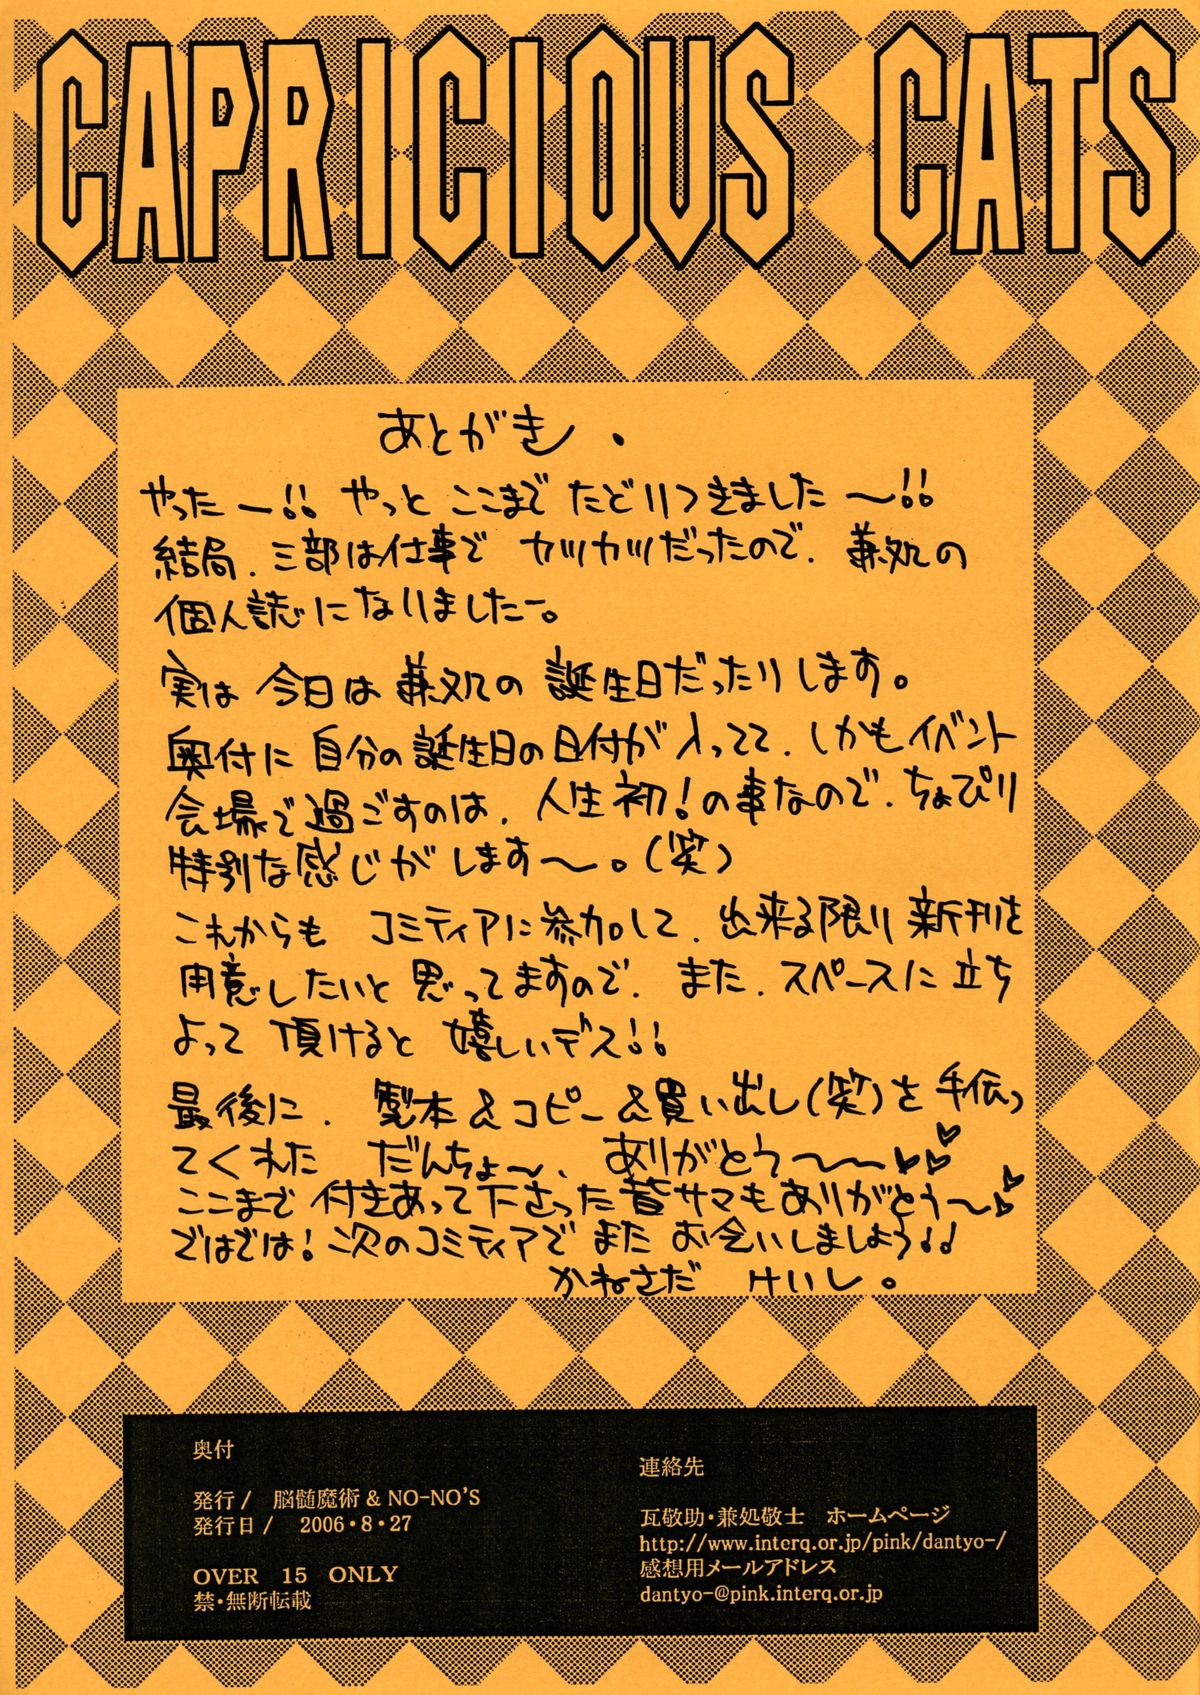 CAPRICIOUS CATS
あとがき.
やったー!! やっと ここまで たどりつきました〜!!
結局、三部は仕事で カツカツだったので、兼処の
個人誌になりましたー。
実は 今日は 兼処の 誕生日だったりします。
奥付に 自分の誕生日の日付が 入ってて、しかもイベント
会場で過ごすのは、人生初!の事なので、ちょぴり
特別な感じがします〜。(笑)
これからも コミティアに参加して、出来る限り 新刊を
用意したいと 思ってますので、また、スペースに立ち
よって 頂けると 嬉しいデス!!
最後に、製本&コピー&買い出し(笑)を 手伝っ
てくれた だんちょ〜、ありがとう〜〜♥♥
ここまで 付きあって下さった皆サマも ありがとう〜♥
ではでは! 次のコミティアで また お会いしましょう!!
かねさだ けいし。
奥付
発行/ 脳髄魔術 & NO-NO'S
発行日/ 2006・8・27
OVER 15 ONLY
禁・無断転載
連絡先
瓦敬助・兼処敬士 ホームページ
http://www.interq.or.jp/pink/dantyo-/
感想用メールアドレス
dantyo-@pink.interq.or.jp